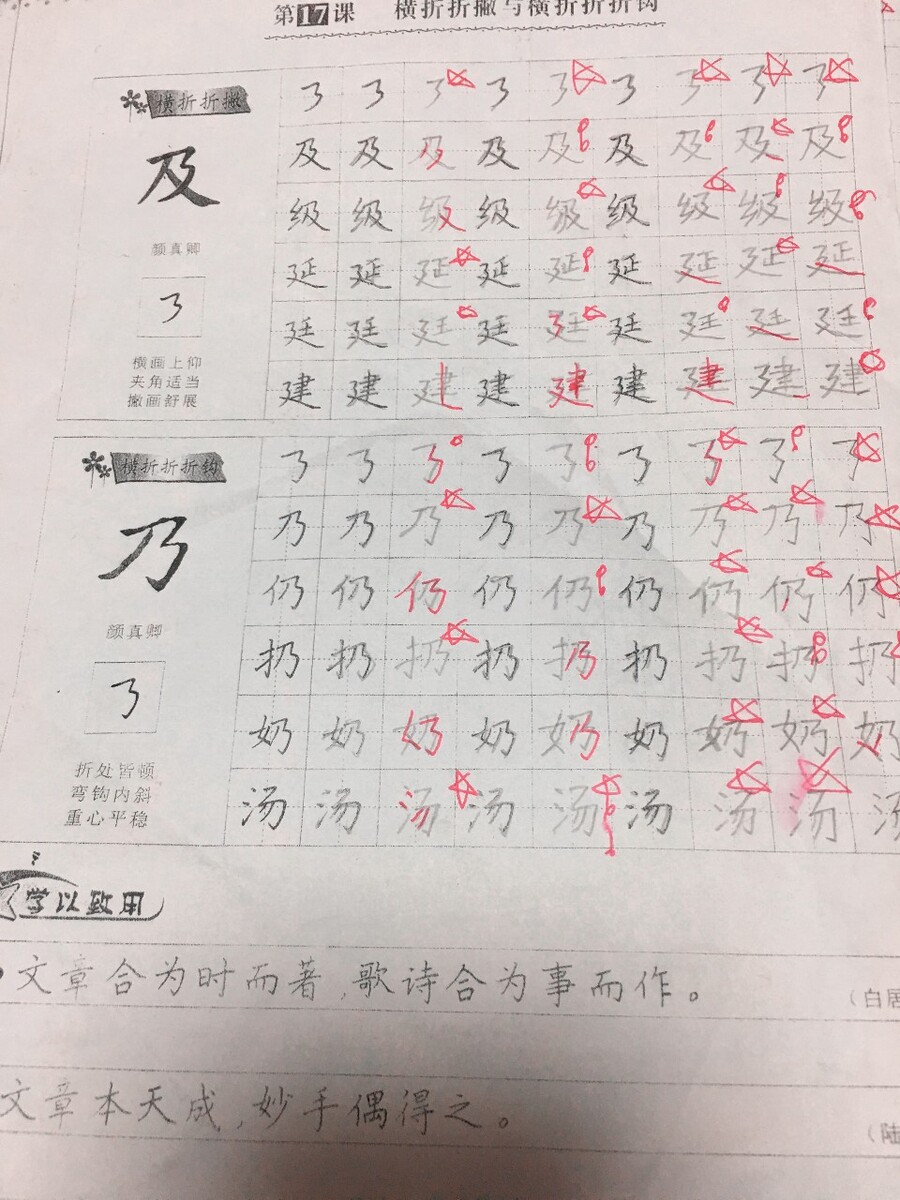 第17课 横折折撇与横折折折钩
横折折撇
及
颜真卿
㇋
横画上仰
夹角适当
撇画舒展
㇋ ㇋ ㇋ ㇋ ㇋ ㇋ ㇋ ㇋ ㇋
及 及 及 及 及 及 及 及 及
级 级 级 级 级 级 级 级 级
延 延 延 延 延 延 延 延 延
廷 廷 廷 廷 廷 廷 廷 廷 廷
建 建 建 建 建 建 建 建 建
横折折折钩
乃
颜真卿
㇡
折处皆顿
弯钩内斜
重心平稳
㇡ ㇡ ㇡ ㇡ ㇡ ㇡ ㇡ ㇡ ㇡
乃 乃 乃 乃 乃 乃 乃 乃 乃
仍 仍 仍 仍 仍 仍 仍 仍 仍
扔 扔 扔 扔 扔 扔 扔 扔 扔
奶 奶 奶 奶 奶 奶 奶 奶 奶
汤 汤 汤 汤 汤 汤 汤 汤 汤
学以致用
文章合为时而著，歌诗合为事而作。
（白居
文章本天成，妙手偶得之。
（陆